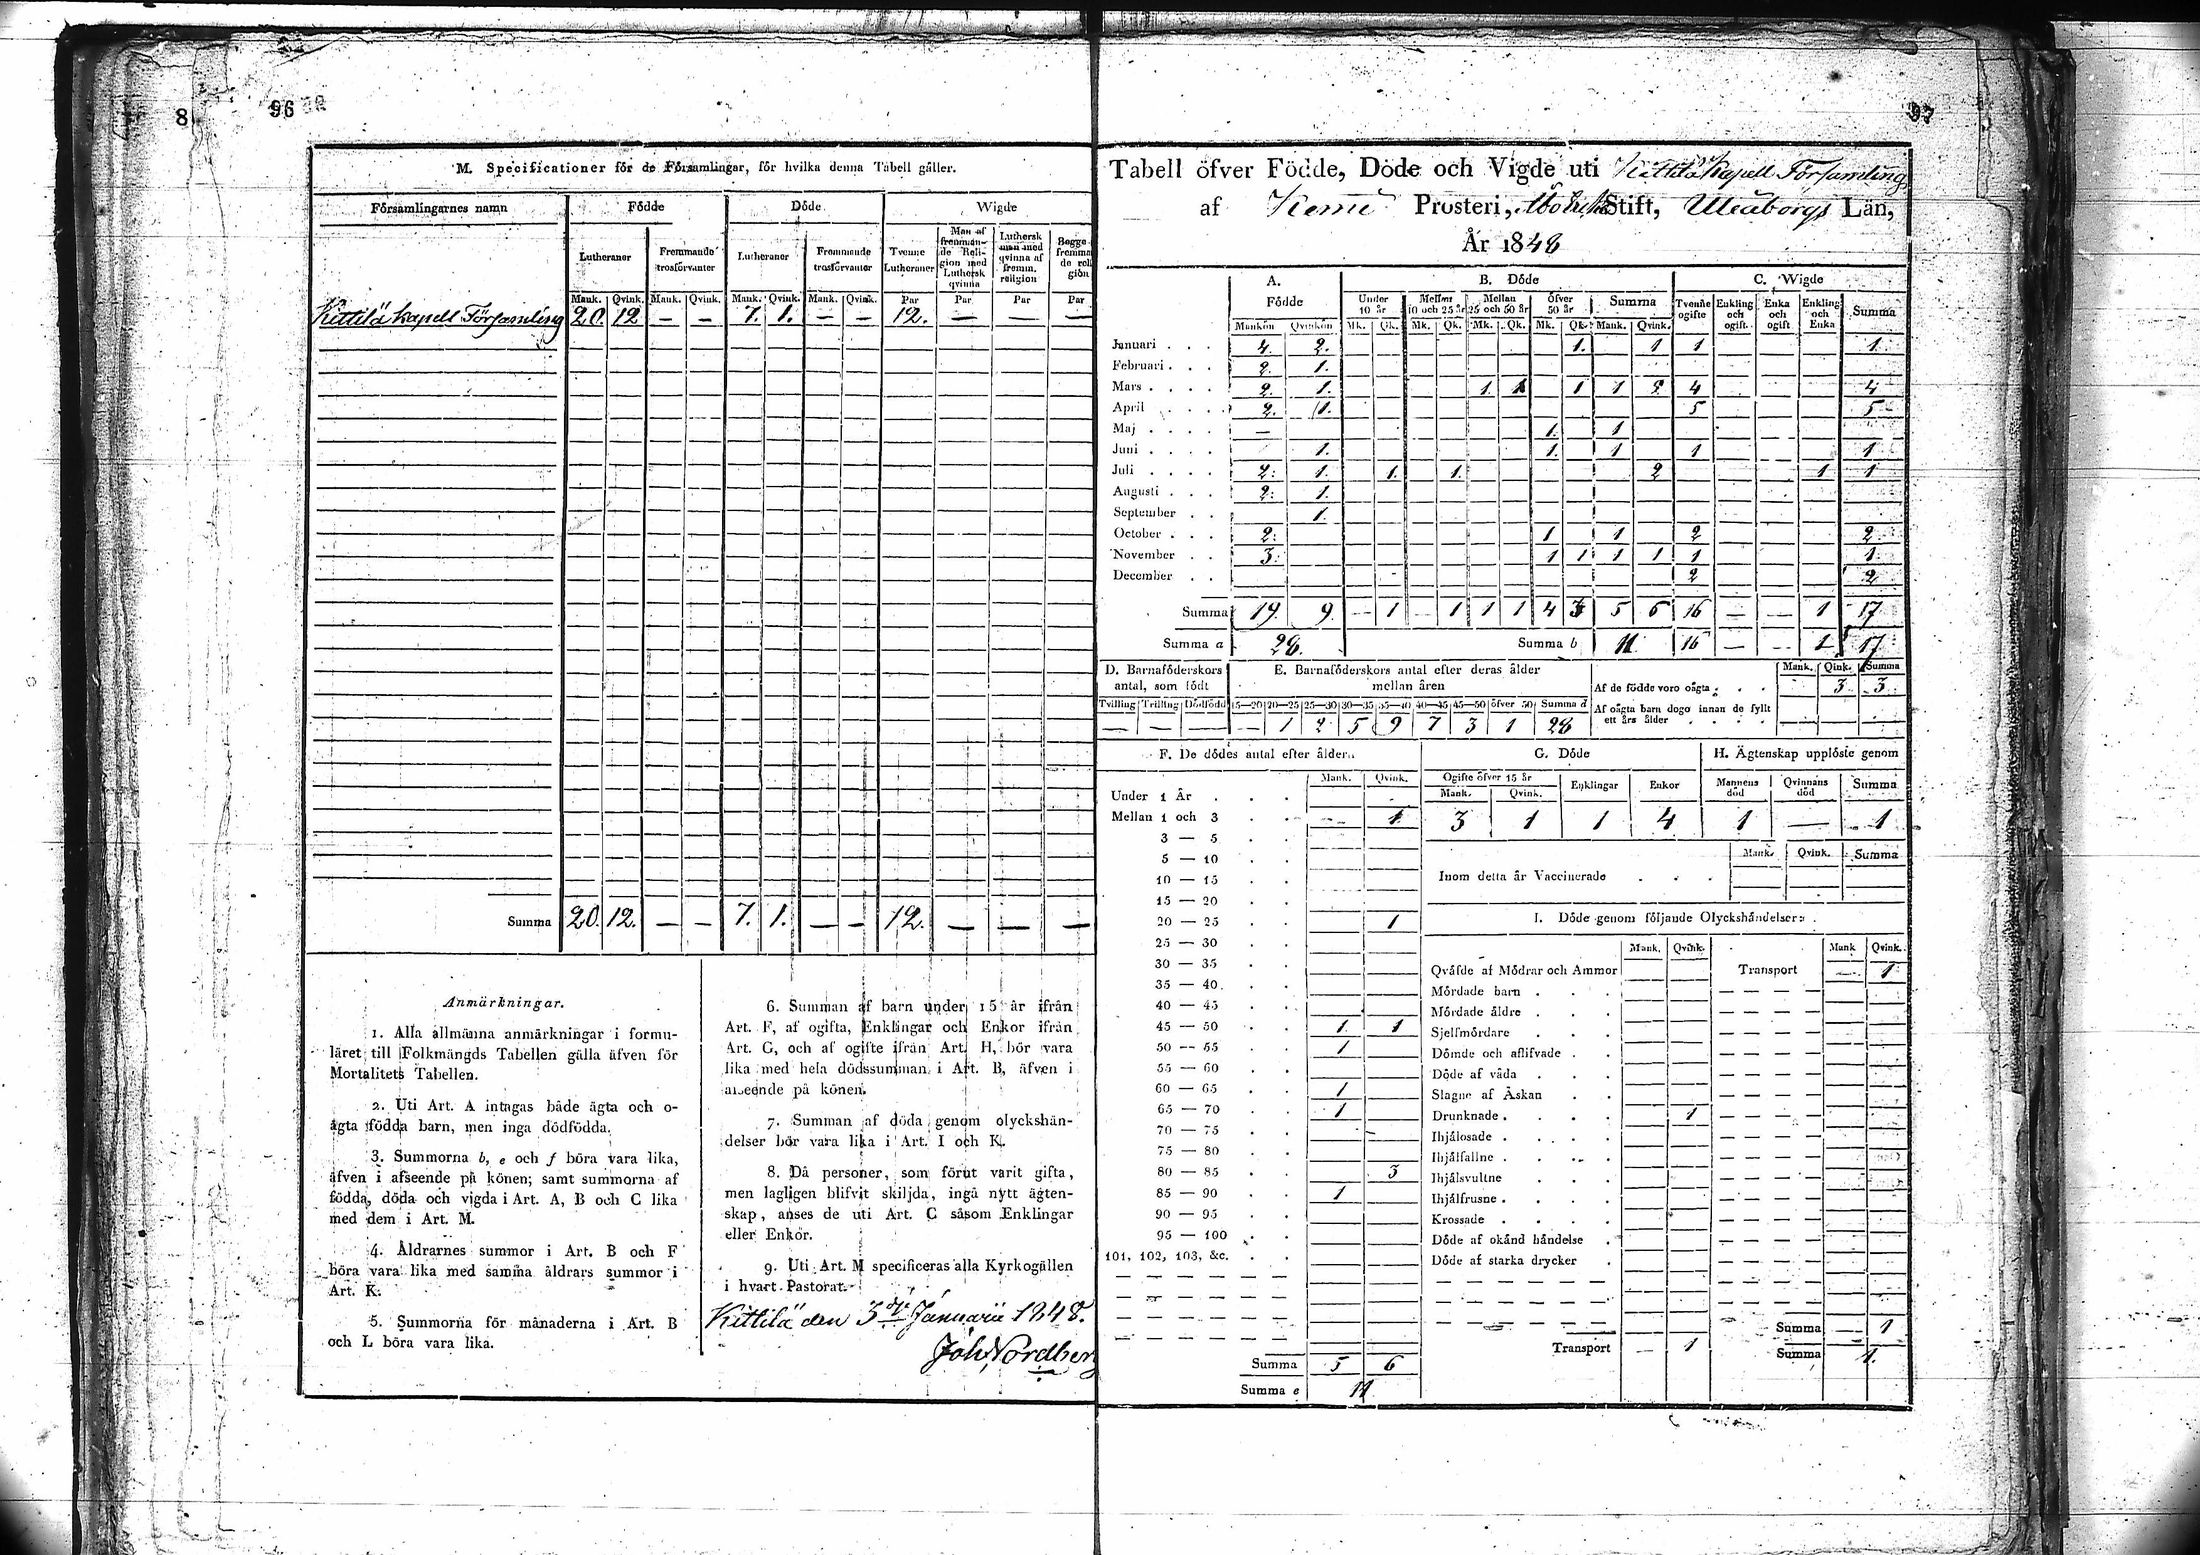 8 96
M. Specificationer för de Församlingar, för hvilka denna Tabell gäller.
Församlingarnes namn Födde Döde Wigde
Lutheraner Fremmande trosförvanter Lutheraner Fremmande trosförvanter Tvenne Lutheraner Man af fremmande Religion med Luthersk qvinna Luthersk man med qvinna af fremm. religion Begge fremmande religion
Mank. Qvink. Mank. Qvink. Mank. Qvink. Mank. Qvink. Par Par Par Par
Kittilä kapell Församling 20. 12 — — 7. 1. — — 12. — — —
Summa 20. 12. — — 7. 1. — — 12. — — —
Anmärkningar.
1. Alla allmänna anmärkningar i formu-
läret till Folkmängds Tabellen gälla äfven för
Mortalitets Tabellen.
2. Uti Art. A intagas både ägta och o-
ägta födda barn, men inga dödfödda.
3. Summorna b, e och f böra vara lika,
äfven i afseende på könen; samt summorna af
födda, döda och vigda i Art. A, B och C lika
med dem i Art. M.
4. Åldrarnes summor i Art. B och F
böra vara lika med samma åldrars summor i
Art. K.
5. Summorna för månaderna i Art. B
och L böra vara lika.
6. Summan af barn under 15 år ifrån
Art. F, af ogifta, Enklingar och Enkor ifrån
Art. G, och af ogifte ifrån Art. H, bör vara
lika med hela dödssumman i Art. B, äfven i
afseende på könen.
7. Summan af döda genom olyckshän-
delser bör vara lika i Art. I och K.
8. Då personer, som förut varit gifta,
men lagligen blifvit skiljda, ingå nytt ägten-
skap, anses de uti Art. C såsom Enklingar
eller Enkor.
9. Uti Art. M specificeras alla Kyrkogällen
i hvart Pastorat.
Kittilä den 3dje Januarii 1848.
Joh. Nordberg
97
Tabell öfver Födde, Döde och Vigde uti Kittilä kapell Församling
af Kemi Prosteri, Åbo Erke Stift, Uleåborgs Län,
År 1848
A. Födde B. Döde C. Wigde
Under 10 år Mellan 10 och 25 år Mellan 25 och 50 år Öfver 50 år Summa Tvenne ogifte Enkling och ogift Enka och ogift Enkling och Enka Summa
Mankön Qvinkön Mk. Qk. Mk. Qk. Mk. Qk. Mk. Qk. Mank. Qvink.
Januari . . . 4. 2. 1. 1 1 1.
Februari . . . 2. 1.
Mars . . . . 2. 1. 1. 1 1 1 2 4 4
April . . . . 2. 1. 5 5
Maj . . . . — 1. 1
Juni . . . . 1. 1. 1 1 1
Juli . . . . 2. 1. 1. 1. 2 1 1
Augusti . . . 2. 1.
September . . 1.
October . . . 2. 1 1 2 2
November . . 3. 1 1 1 1 1 1.
December . . 2 2
Summa 19. 9. — 1 — 1 1 1 4 3 5 6 16 — — 1 17
Summa a 28. Summa b 11 16 — — 1 17
D. Barnaföderskors antal, som födt
Tvilling Trilling Dödfödd
— — —
E. Barnaföderskors antal efter deras ålder mellan åren
15—20 20—25 25—30 30—35 35—40 40—45 45—50 öfver 50 Summa d
— 1 2 5 9 7 3 1 28
Mank. Qink. Summa
Af de födde voro oägta . . . 3. 3.
Af oägta barn dogo innan de fyllt
ett års ålder . . . .
F. De dödes antal efter åldern.
Mank. Qvink.
Under 1 År . . .
Mellan 1 och 3 . . — 1
3 — 5 . .
5 — 10 . .
10 — 15 . .
15 — 20 . .
20 — 25 . . 1
25 — 30 . .
30 — 35 . .
35 — 40 . .
40 — 45 . .
45 — 50 . . 1 1
50 — 55 . . 1
55 — 60 . .
60 — 65 . . 1
65 — 70 . . 1
70 — 75 . .
75 — 80 . .
80 — 85 . . 3
85 — 90 . . 1
90 — 95 . .
95 — 100 . .
101, 102, 103, &c. . .
Summa 5 6
Summa e 11
G. Döde
Ogifte öfver 15 år Enklingar Enkor
Mank. Qvink.
3 1 1 4
H. Ägtenskap upplöste genom
Mannens död Qvinnans död Summa
1 — 1
Mank. Qvink. Summa
Inom detta år Vaccinerade . . .
I. Döde genom följande Olyckshändelser:
Mank. Qvink. Mank Qvink.
Qväfde af Mödrar och Ammor Transport — 1
Mördade barn . . .
Mördade äldre . . .
Sjelfmördare . . .
Dömde och aflifvade . .
Döde af våda . . .
Slagne af Åskan . .
Drunknade . . . . 1
Ihjälosade . . . .
Ihjälfallne . . . .
Ihjälsvultne . . .
Ihjälfrusne . . . .
Krossade . . . .
Döde af okänd händelse .
Döde af starka drycker .
Summa — 1
Transport — 1 Summa 1.